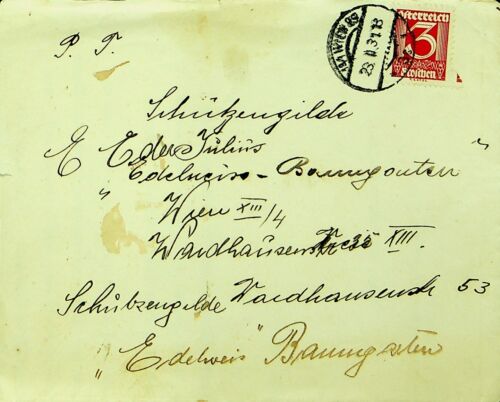 P. T.
Österreich
3
Groschen
WIEN 89
23. II. 31. 18
Schützengilde
E Eder Julius
„ Edelweiss - Baumgarten "
Wien XIII/4
Waidhausenstr XIII.
Schützengilde Waidhausenstr 53
„Edelweis" Baumgarten